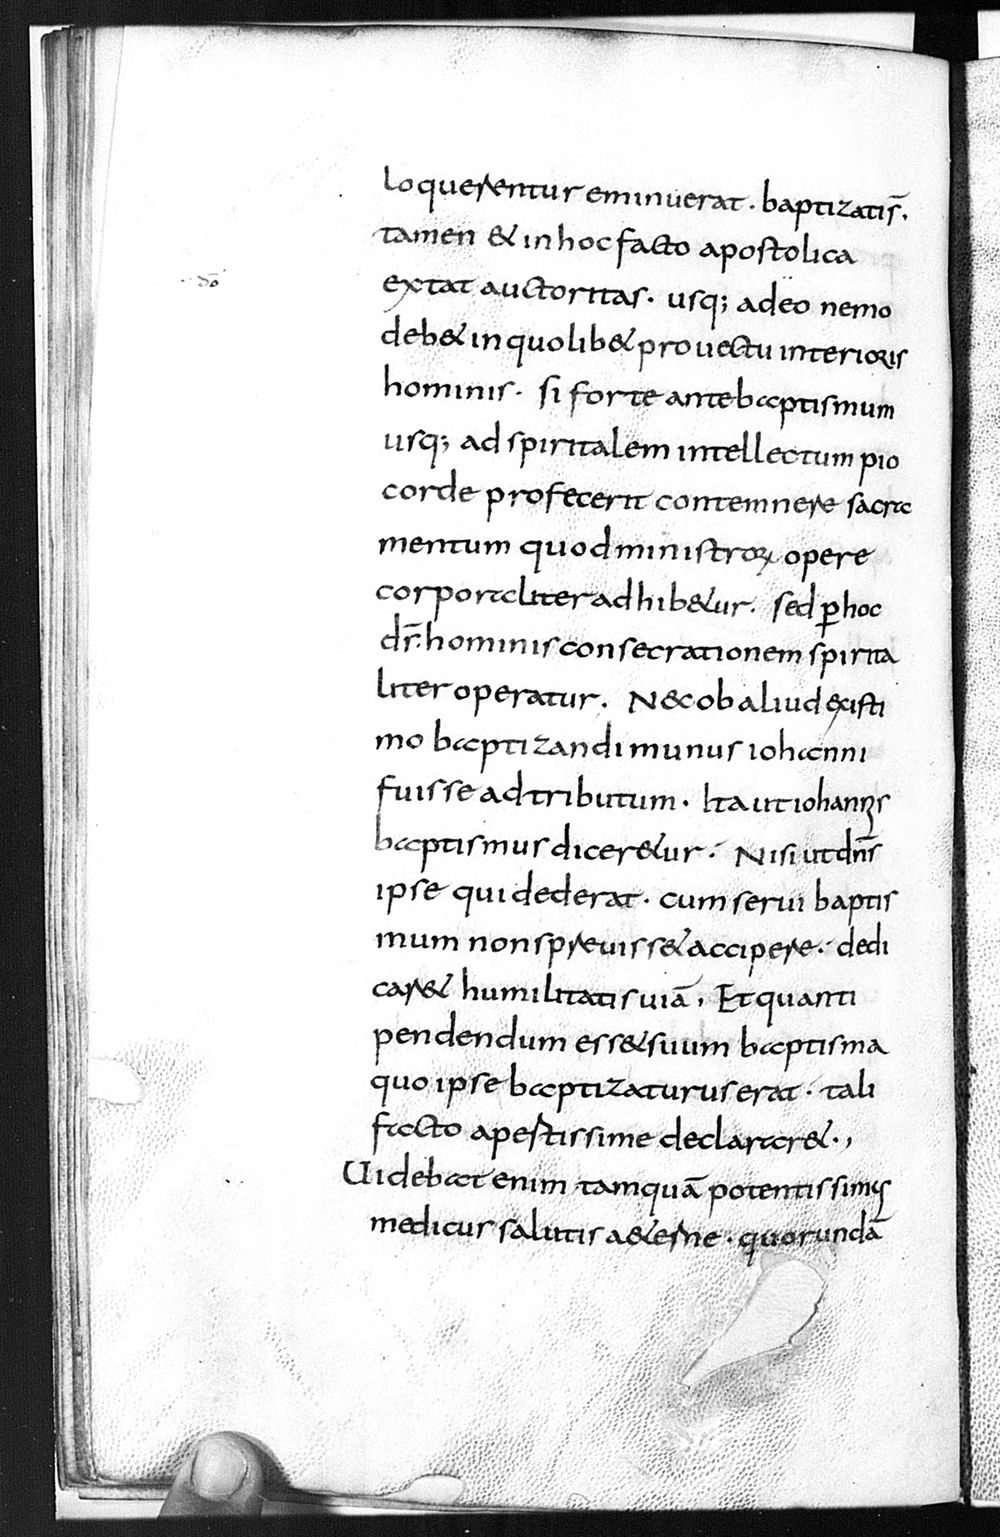 loquerentur eminuerat. baptizatis̄.
tamen & in hoc facto apostolica
extat auctoritas. usq; adeo nemo
deb& in quolib& prouectu interioris
hominis. si forte ante baptismum
usq; ad spiritalem intellectum pio
corde profecerit contemnere sacra
mentum quod ministroꝝ opere
corporaliter adhib&ur. sed ꝑ hoc
dr̄. hominis consecrationem spirita
liter operatur. Nec ob aliud existi
mo baptizandi munus iohanni
fuisse adtributum. Ita ut iohannis
baptismus dicer&ur. Nisi ut dn̄s
ipse qui dederat. cum serui baptis
mum non spreuiss& accipere. dedi
car& humilitatis uiā. Et quanti
pendendum ess& suum baptisma
quo ipse baptizaturus erat. tali
facto apertissime declarar&.,
Uidebat enim tamquā potentissimus
medicus salutis a&erne. quorundā